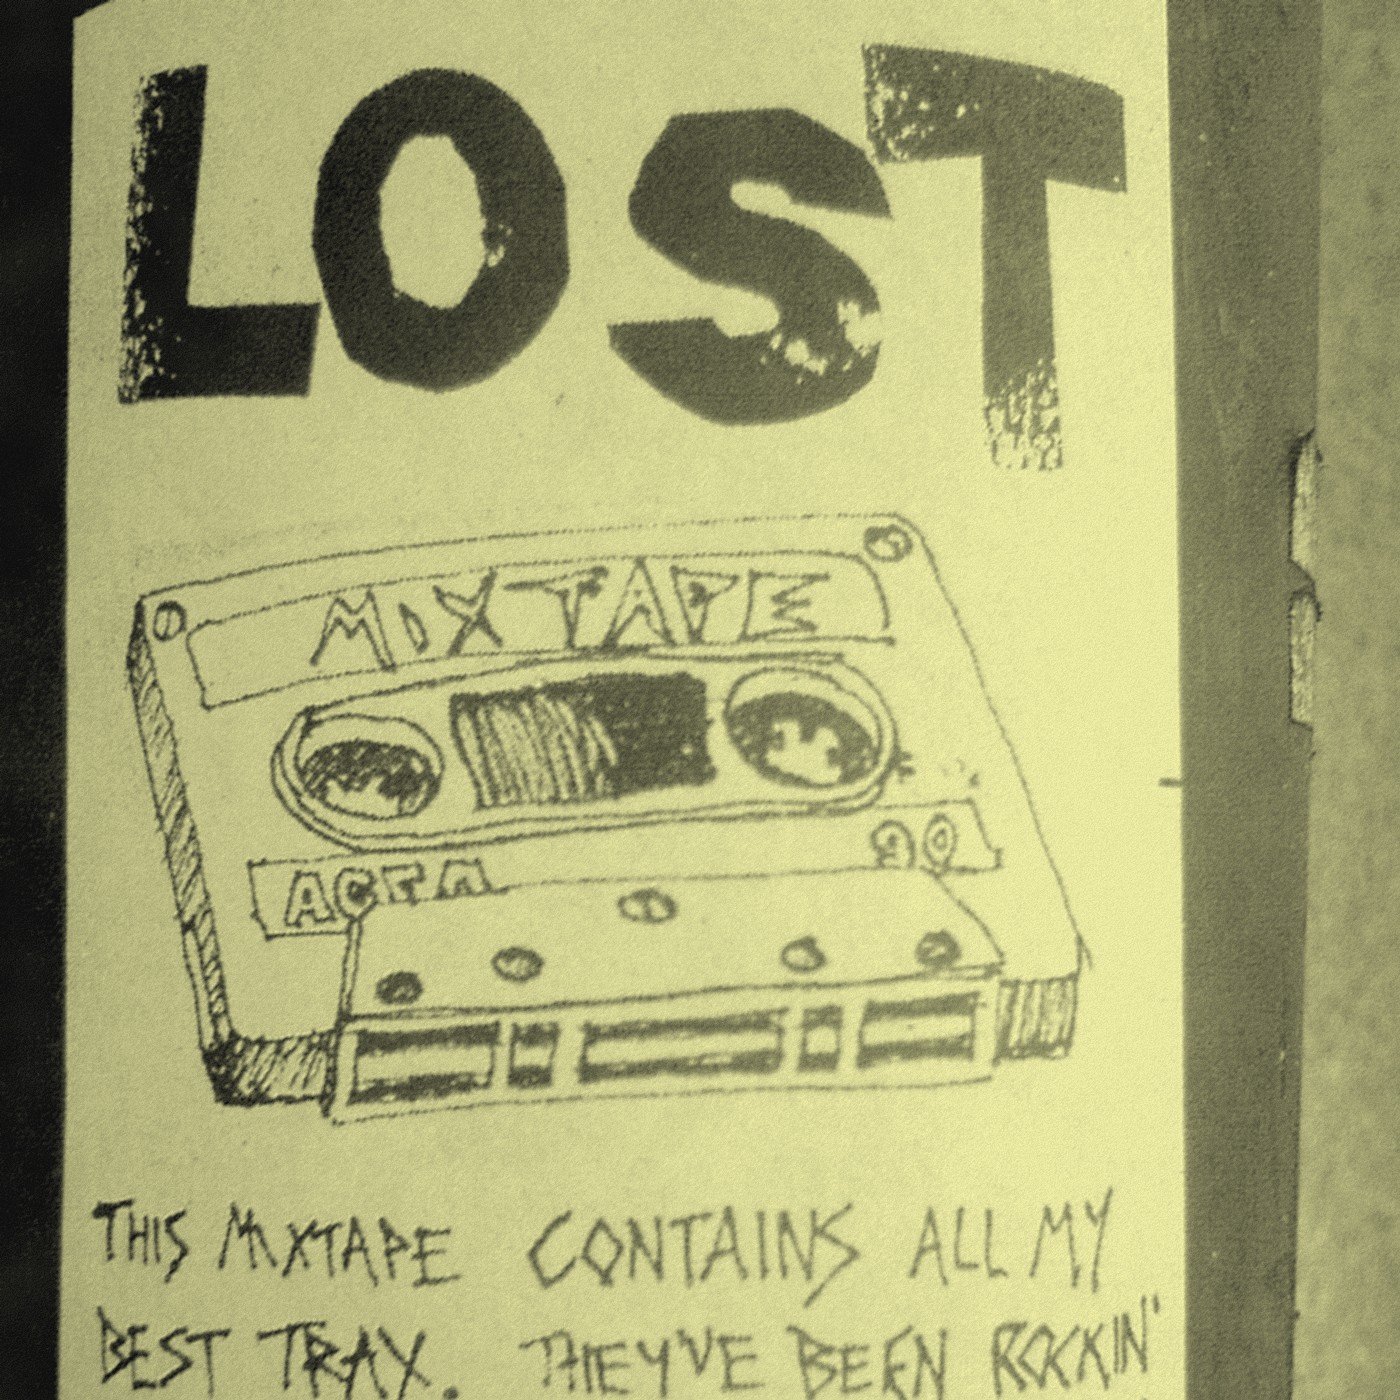 LOST
MIXTAPE
90
THIS MIXTAPE CONTAINS ALL MY
BEST TRAX. THEY'VE BEEN ROCKIN'